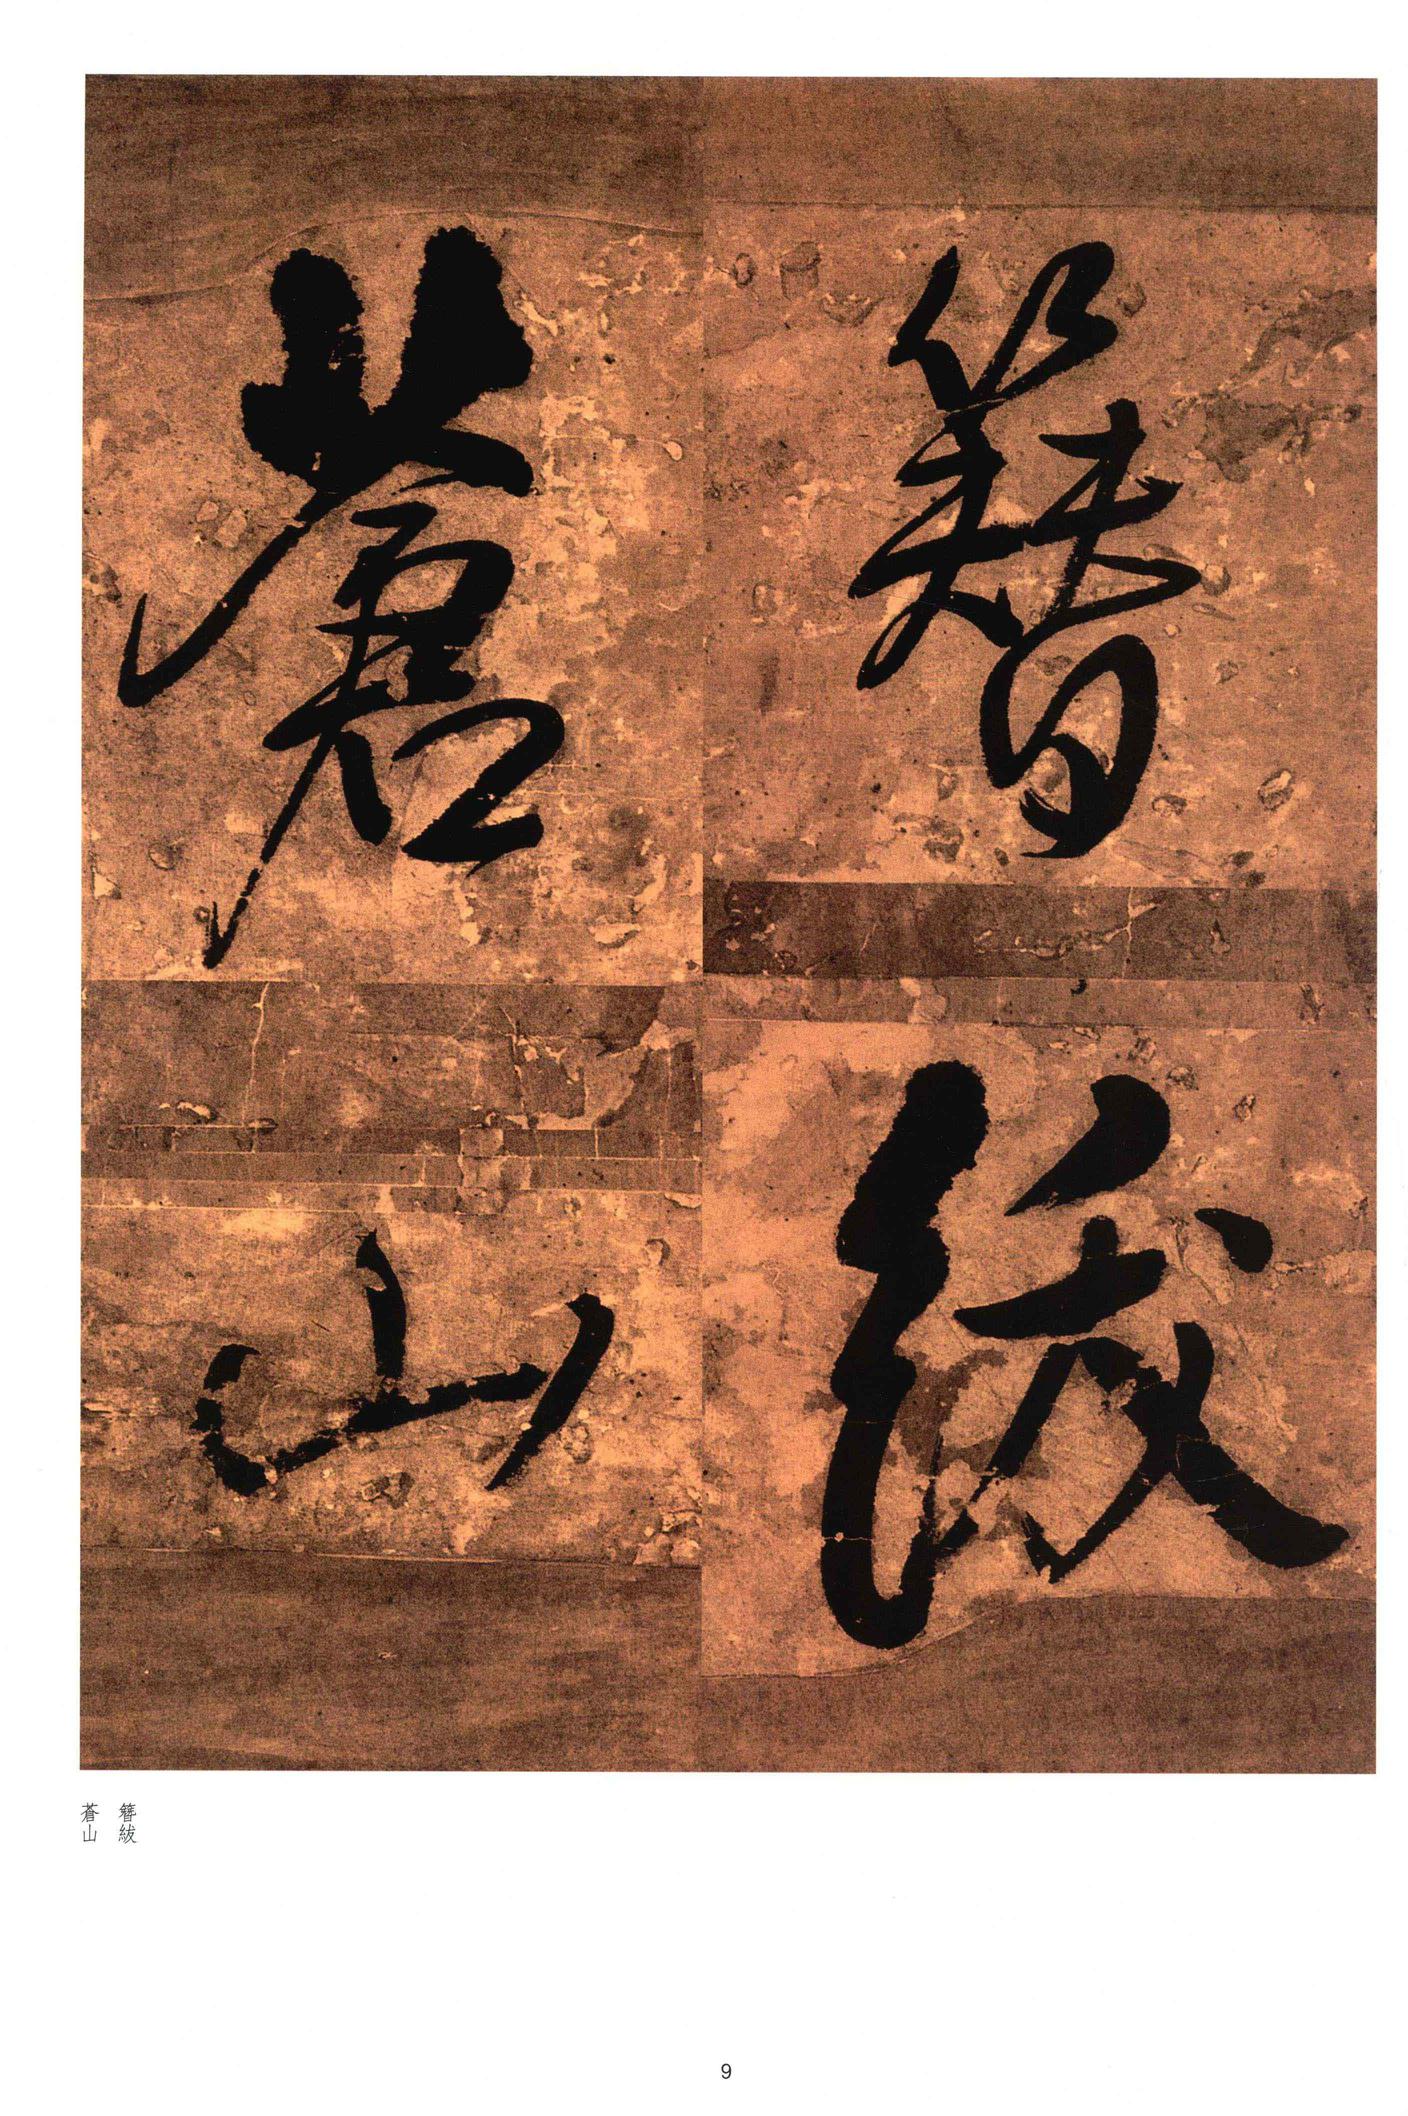 簪紱
蒼山
簪紱
蒼山
9